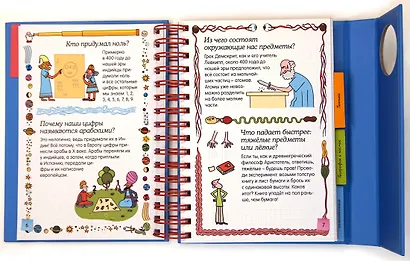 Кто придумал ноль?
Примерно
в 400 году до
нашей эры
индийцы при-
думали ноль
и все осталь-
ные цифры,
которые мы
знаем 1, 2,
3, 4, 5, 6, 7, 8, 9.
Почему наши цифры
называются арабскими?
Это неверно, ведь придумали их в Ин-
дии! Всё потому, что в Европу цифры при-
несли арабы в X веке. Арабы переняли их
у индийцев, а затем, когда приплыли
в Испанию, передали ци-
фры и их написание
европейцам.
6
Из чего состоят
окружающие нас предметы?
Грек Демокрит, как и его учитель
Левкипп, около 400 года до
нашей эры предположил, что
все состоит из мельчай-
ших частиц – атомов.
Атомы уже невоз-
можно разделить
на более мелкие
части.
Что падает быстрее:
тяжёлые предметы
или лёгкие?
Если ты, как и древнегреческий
философ Аристотель, ответишь,
тяжёлые – будешь прав! Прове-
ди эксперимент: возьми толстую
книгу и лист бумаги и брось их
с одинаковой высоты. Каков
итог? Книга упадёт на пол рань-
ше, чем бумага!
7